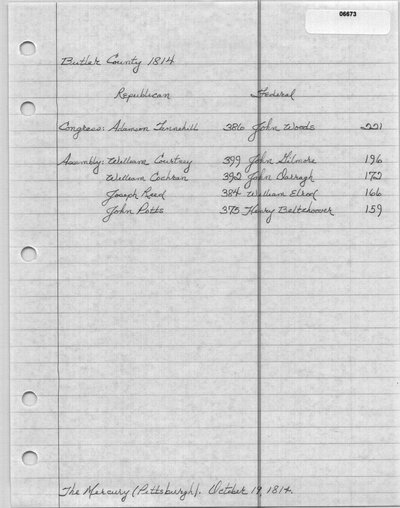 06673
Butler County 1814
Republican Federal
Congress: Adamson Tannehill 386 John Woods 221
Assembly: William Courtney 399 John Gilmore 196
William Cochran 392 John Darragh 172
Joseph Reed 384 William Elrod 166
John Potts 373 Henry Beltzhoover 159
The Mercury (Pittsburgh). October 19, 1814.